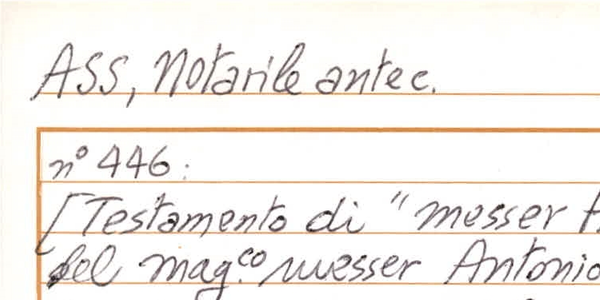 ASS, Notarile antec.
n° 446:
[Testamento di "messer
del mag.co messer Antonio